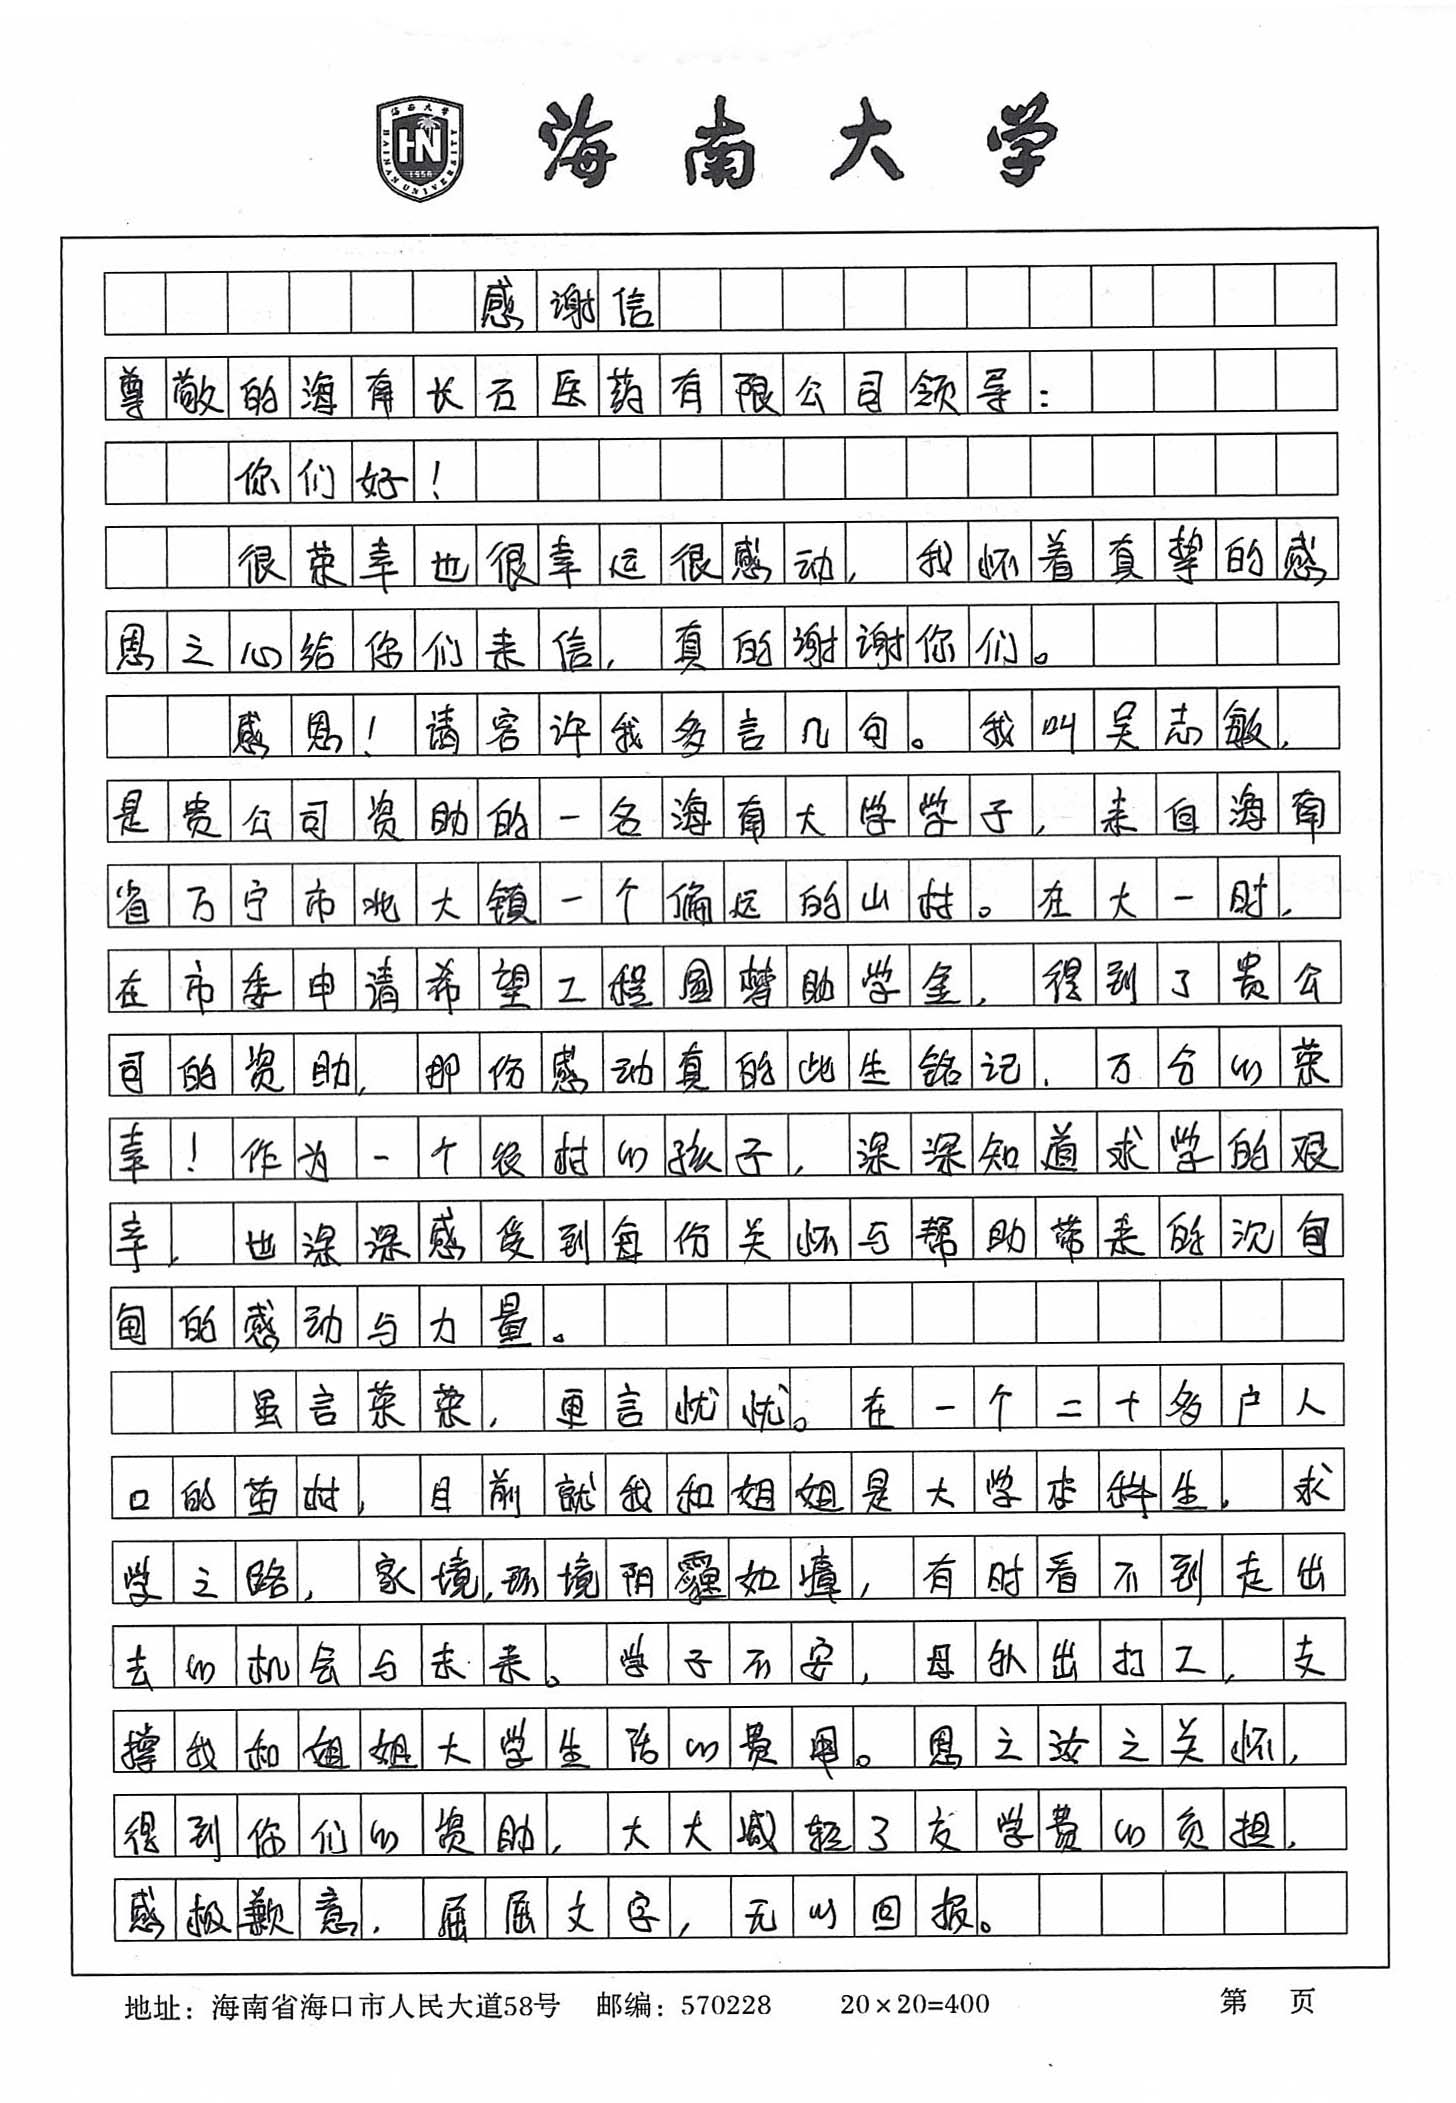 海南大学
感谢信
尊敬的海南长石医药有限公司领导：
你们好！
很荣幸也很幸运很感动，我怀着真挚的感
恩之心给你们来信，真的谢谢你们。
感恩！请容许我多言几句。我叫吴志敏，
是贵公司资助的一名海南大学学子，来自海南
省万宁市北大镇一个偏远的山村。在大一时，
在市委申请希望工程圆梦助学金，得到了贵公
司的资助，那份感动真的此生铭记，万分的荣
幸！作为一个农村的孩子，深深知道求学的艰
辛，也深深感受到每份关怀与帮助带来的沉甸
甸的感动与力量。
虽言荣荣，更言忧忧。在一个二十多户人
口的苗村，目前就我和姐姐是大学本科生，求
学之路，家境，环境阴霾如瘴，有时看不到走出
去的机会与未来。学子不安，母外出打工，支
撑我和姐姐大学生活的费用。恩之汝之关怀，
得到你们的资助，大大减轻了友学费的负担，
感极歉意，屈屈文字，无以回报。
地址：海南省海口市人民大道58号 邮编：570228 20×20=400 第 页